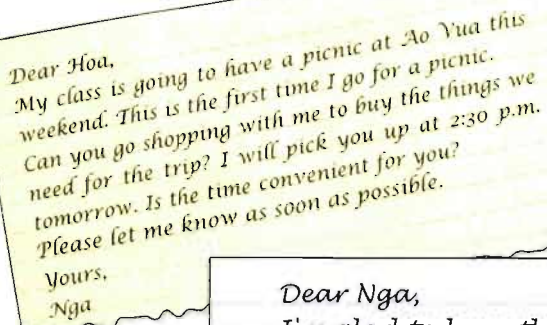 Dear Hoa,
My class is going to have a picnic at Ao Vua this
weekend. This is the first time I go for a picnic.
Can you go shopping with me to buy the things we
need for the trip? I will pick you up at 2:30 p.m.
tomorrow. Is the time convenient for you?
Please let me know as soon as possible.
Yours,
Nga
Dear Nga,